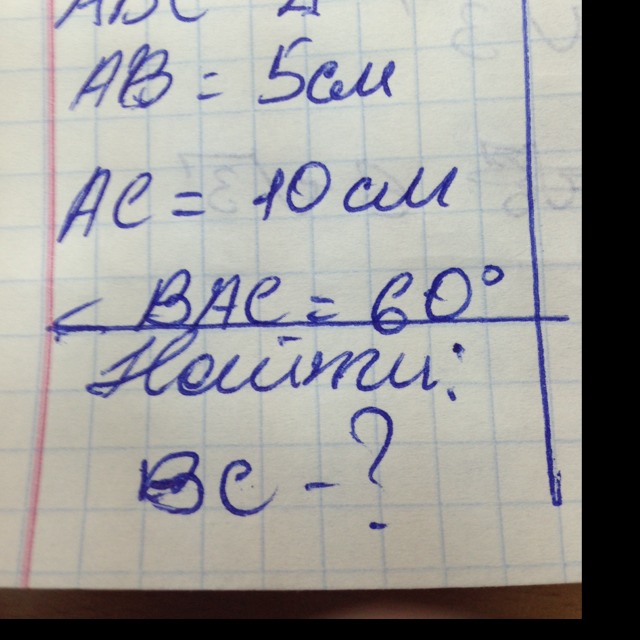 ABC Δ
AB = 5см
AC = 10 см
< BAC = 60°
Найти:
BC - ?